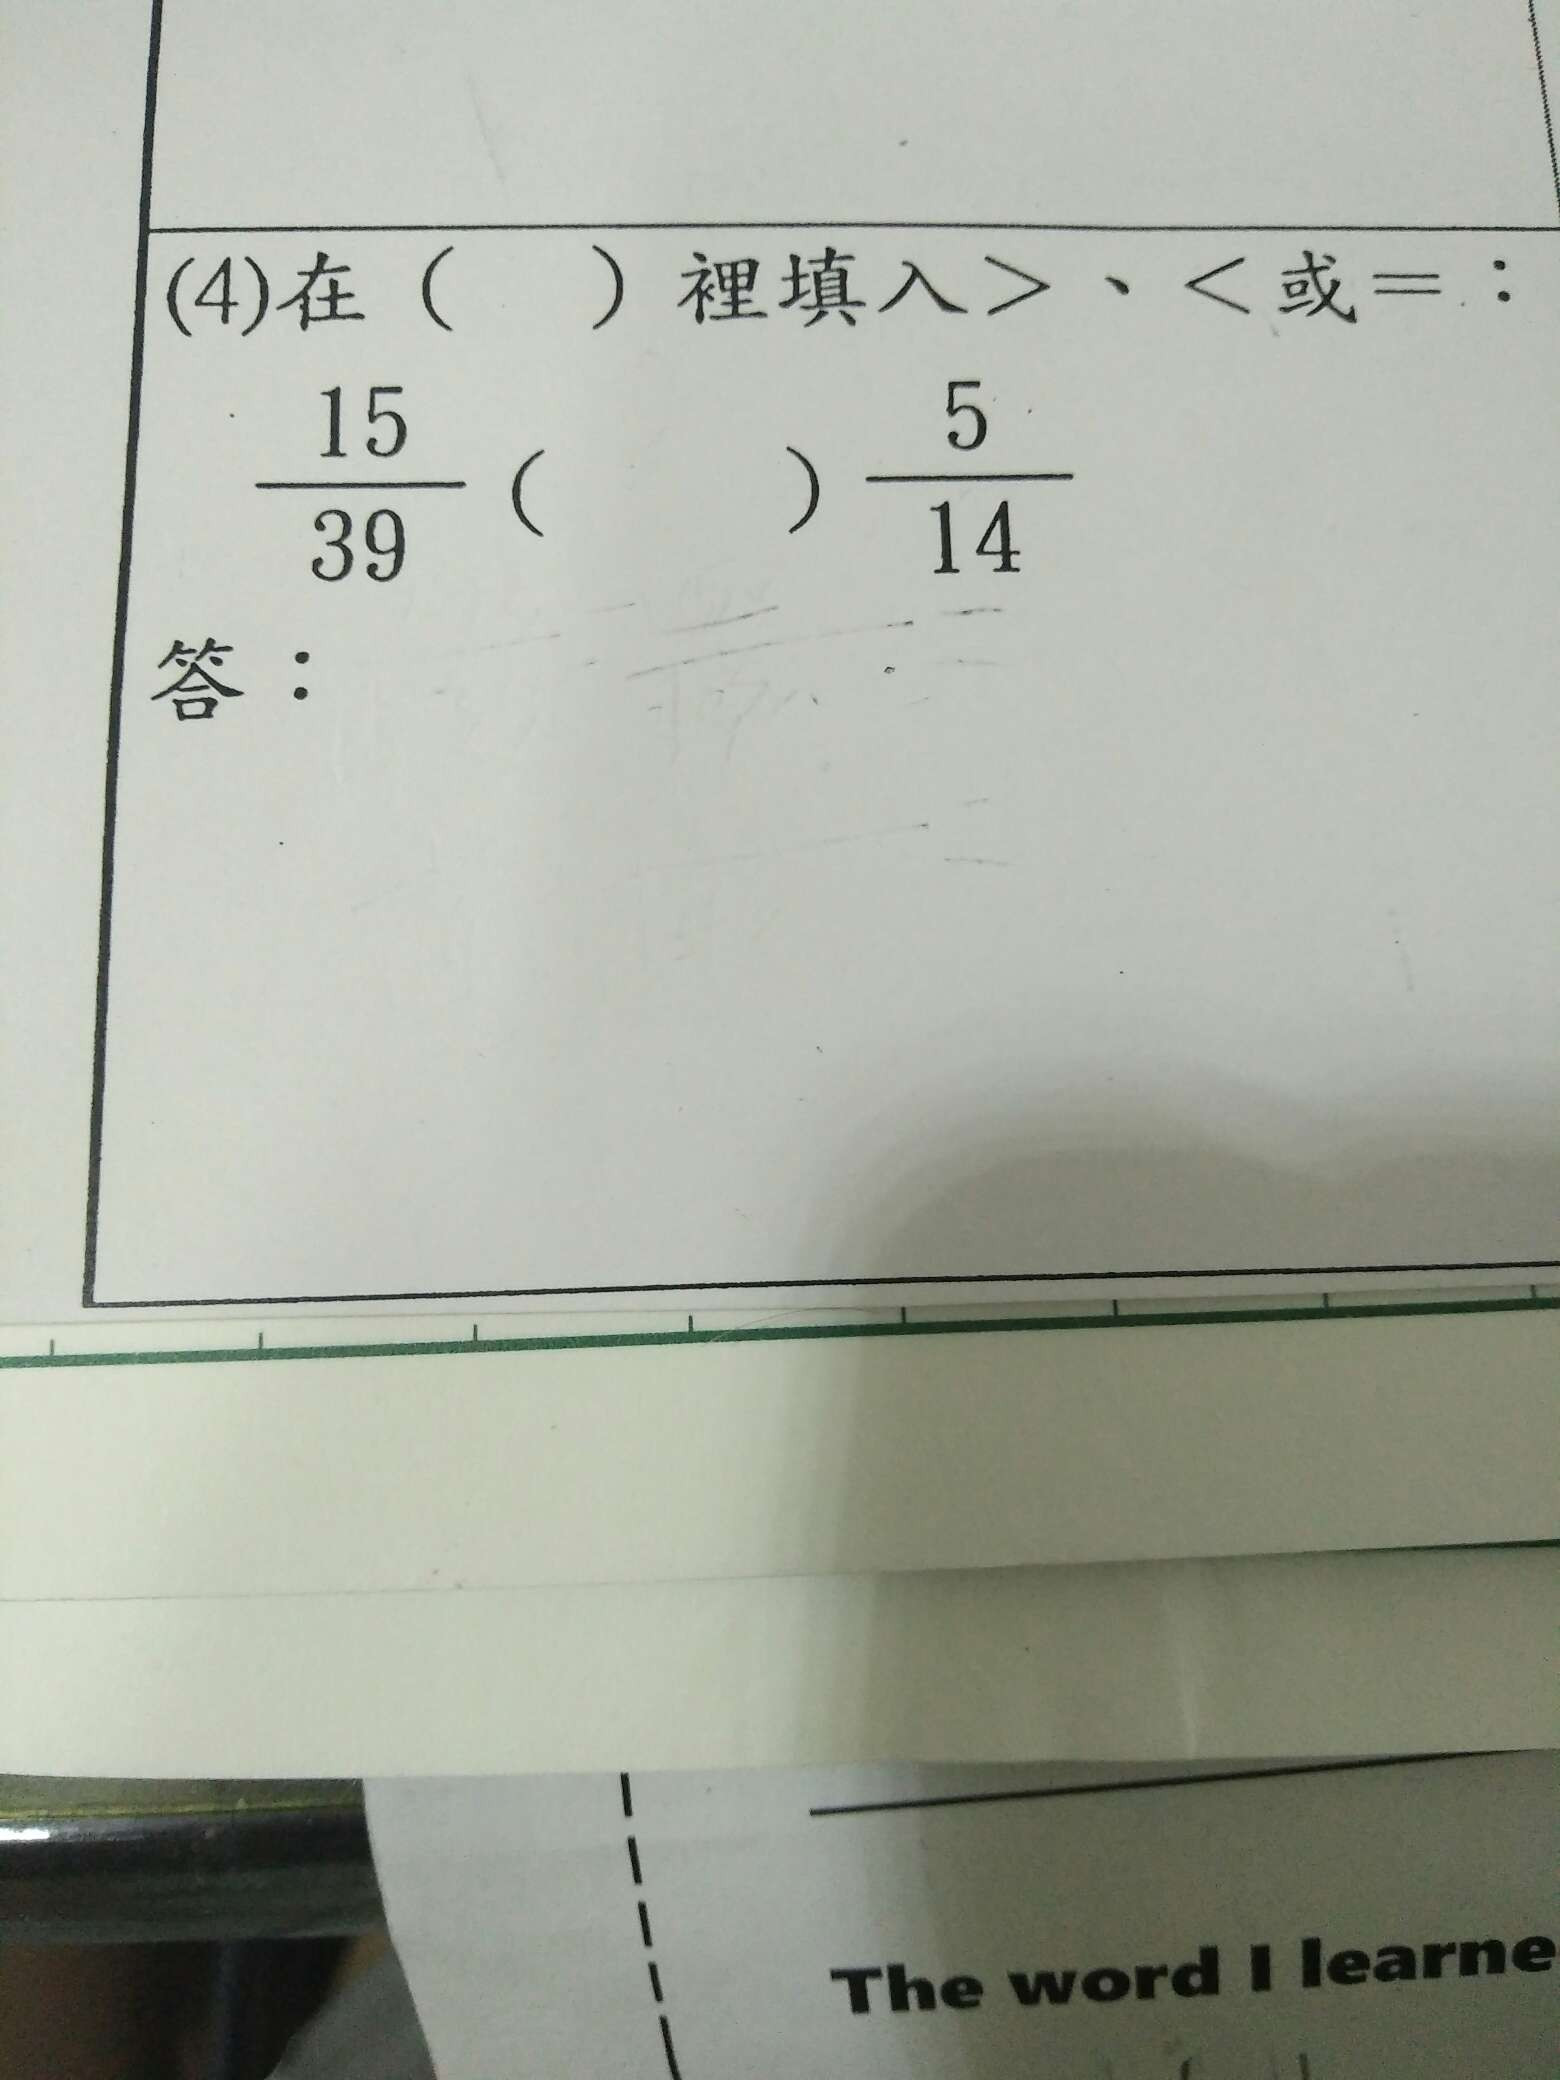 (4)在（　）裡填入＞、＜或＝：
15/39（　）5/14
答：
The word I learne